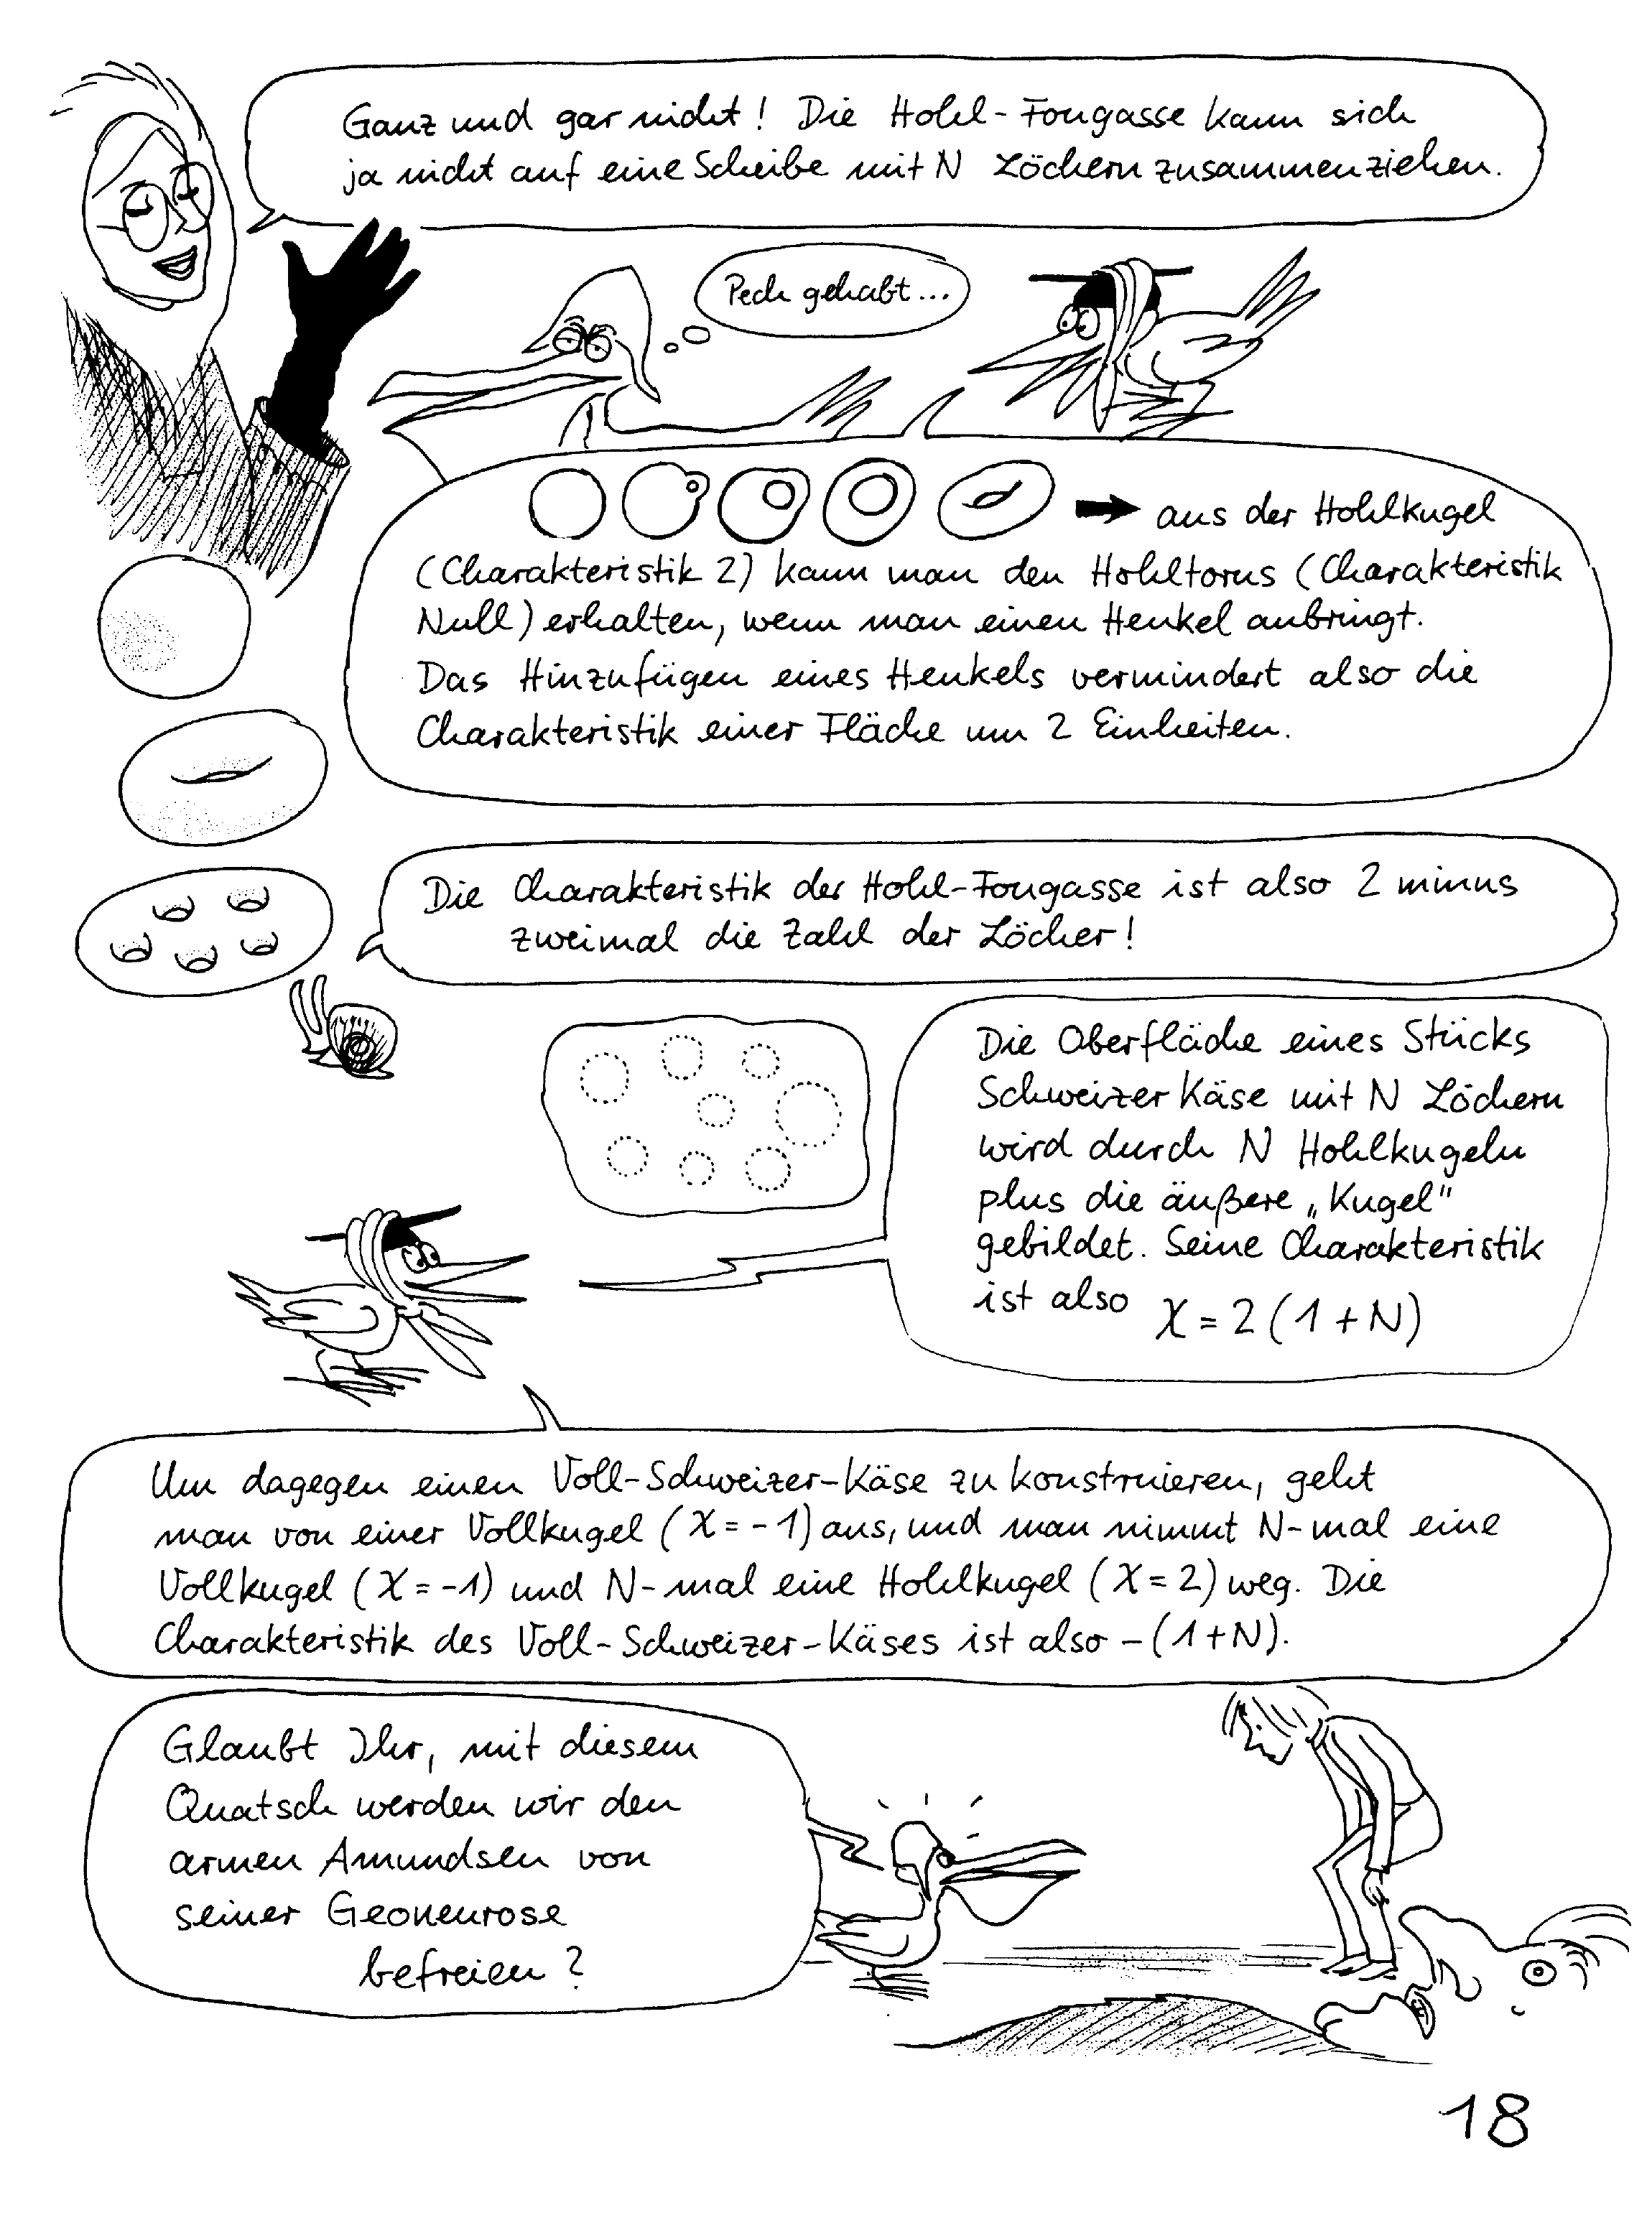 Ganz und gar nicht! Die Hohl-Fougasse kann sich
ja nicht auf eine Scheibe mit N Löchern zusammenziehen.
Pech gehabt...
aus der Hohlkugel
(Charakteristik 2) kann man den Hohltorus (Charakteristik
Null) erhalten, wenn man einen Henkel anbringt.
Das Hinzufügen eines Henkels vermindert also die
Charakteristik einer Fläche um 2 Einheiten.
Die Charakteristik der Hohl-Fougasse ist also 2 minus
zweimal die Zahl der Löcher!
Die Oberfläche eines Stücks
Schweizer Käse mit N Löchern
wird durch N Hohlkugeln
plus die äußere „Kugel"
gebildet. Seine Charakteristik
ist also χ = 2 (1 + N)
Um dagegen einen Voll-Schweizer-Käse zu konstruieren, geht
man von einer Vollkugel (χ = -1) aus, und man nimmt N-mal eine
Vollkugel (χ = -1) und N-mal eine Hohlkugel (χ = 2) weg. Die
Charakteristik des Voll-Schweizer-Käses ist also -(1+N).
Glaubt Ihr, mit diesem
Quatsch werden wir den
armen Amundsen von
seiner Geoneurose
befreien?
18